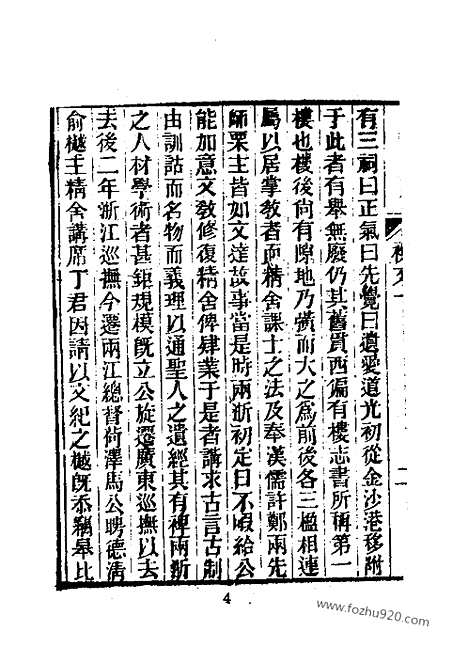 有三祠曰正氣曰先覺曰遺愛道光初從金沙港移附
于此者有舉無廢仍其舊貫西偏有樓志書所稱第一
樓也樓後尙有隙地乃廣而大之爲前後各三楹相連
屬以居掌教者而精舍課士之法及奉漢儒許鄭兩先
師栗主皆如文達故事當是時兩浙初定日不暇給公
能加意文敎修復精舍俾肄業于是者講求古言古制
由訓詁而名物而義理以通聖人之遺經其有裨兩浙
之人材學術者甚鉅規模旣立公旋遷廣東巡撫以去
去後二年浙江巡撫今遷兩江總督荷澤馬公聘德淸
俞樾主精舍講席丁君因請以文紀之樾旣忝竊皋比
二
4
www.fozhu920.com